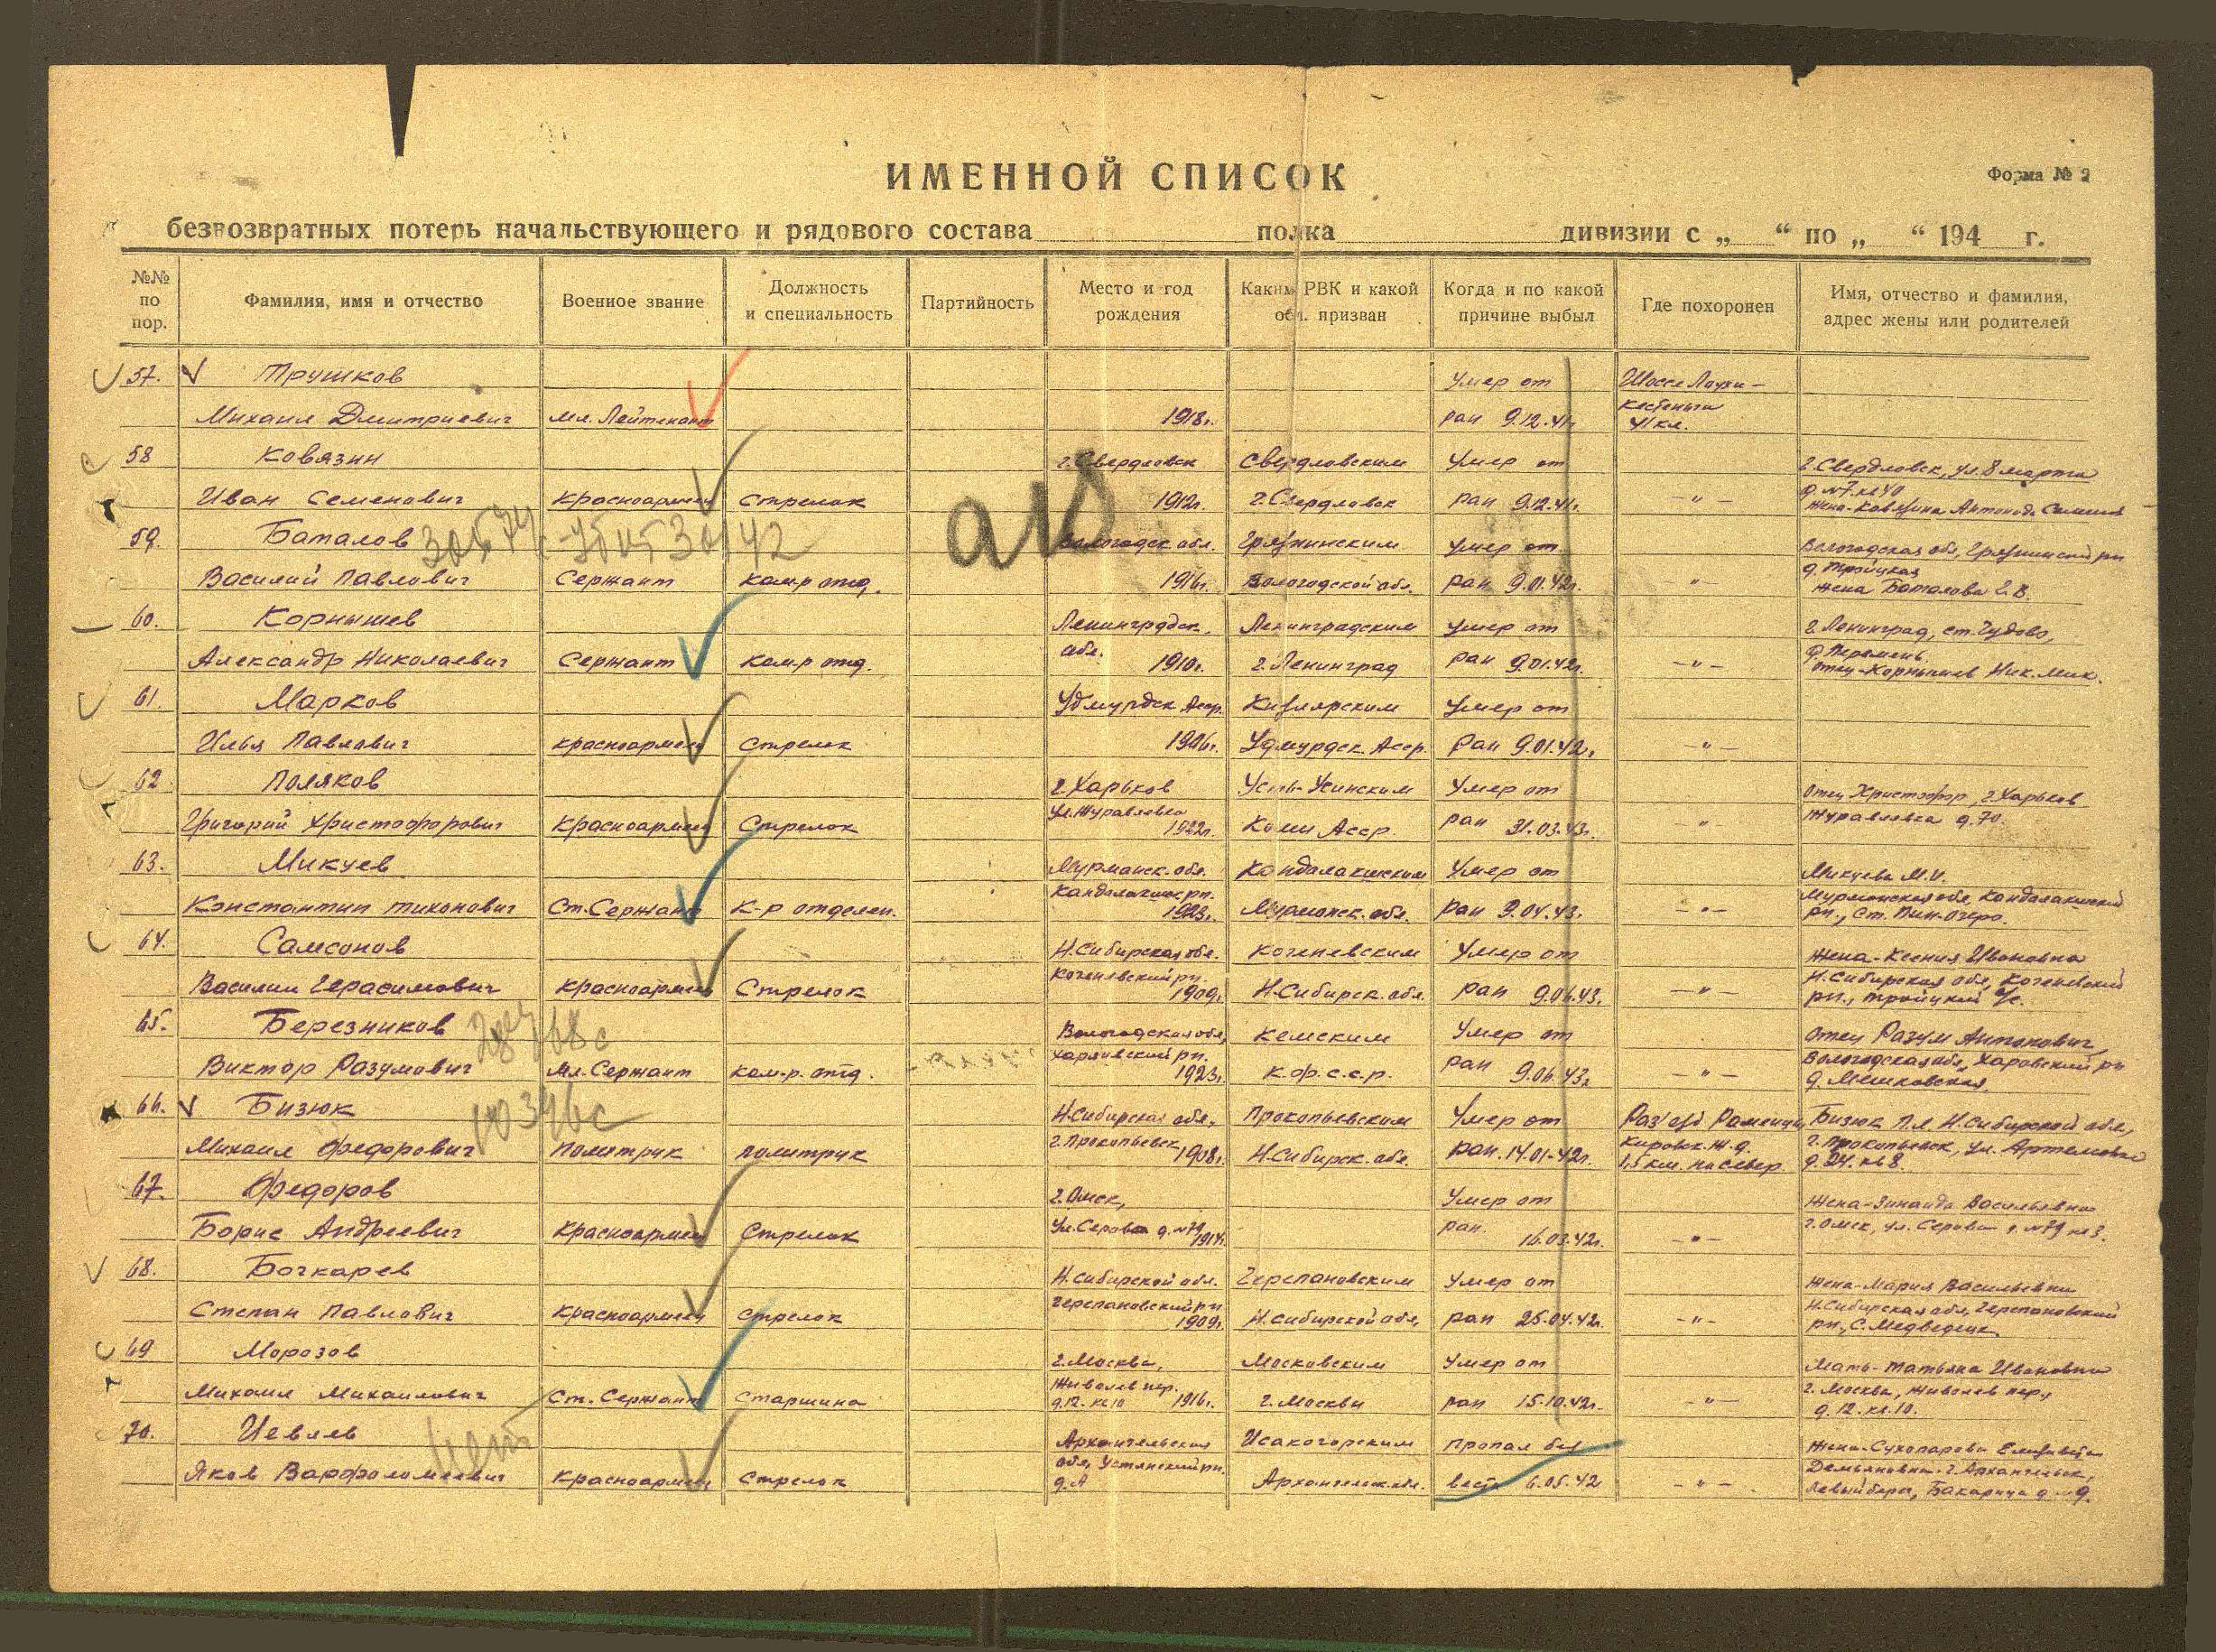 ИМЕННОЙ СПИСОК
Форма № 2
безвозвратных потерь начальствующего и рядового состава полка дивизии с „ “ по „ “ 194 г.
№№ по пор.
Фамилия, имя и отчество
Военное звание
Должность и специальность
Партийность
Место и год рождения
Каким РВК и какой обл. призван
Когда и по какой причине выбыл
Где похоронен
Имя, отчество и фамилия, адрес жены или родителей
57. Трушков Умер от Шоссе Лоухи-
Михаил Дмитриевич Мл. Лейтенант 1918г. ран 9.12.41г. Кестеньга 41 км.
58 Ковязин г. Свердловск Свердловским Умер от г. Свердловск, ул. 8 марта
Иван Семенович Красноармеец Стрелок 1912г. г. Свердловск ран 9.12.41г. -"- д. №7. кв 40
жена-Ковязина
59. Баталов 30574 Вологодск. обл. Грязнинским Умер от Вологодская обл, Грязнинский рн
Василий Павлович Сержант ком-р отд. 1916г. Вологодской обл. ран 9.01.42г. -"- д. Тройцкая
жена Баталова Е.В.
60. Корнышев Ленинградск. Ленинградским Умер от г. Ленинград, ст. Чудово,
Александр Николаевич Сержант ком-р отд. обл. 1910г. г. Ленинград ран 9.01.42г. -"- д. Перемень
отец-Корнышев Ник. Мих.
61. Марков Удмурдск Асср. Кизлярским Умер от
Илья Павлович Красноармеец Стрелок 1906г. Удмурдск. Асср. ран 9.01.42г. -"-
62 Поляков г. Харьков Усть-Усинским Умер от Отец Христофор, г. Харьков
Григорий Христофорович Красноармеец Стрелок ул. Журавлевка 1922г. Коми Асср. ран 31.03.43г. -"- Журавлевка д. 70.
63. Микуев Мурманск. обл. Кандалакшским Умер от Микуева М.И.
Константин Тихонович Ст. Сержант К-р отделен. Кандалакшск рн. 1923г. Мурманск. обл. ран 9.04.43г. -"- Мурманская обл, Кандалакшский
рн., ст. Пин-озеро.
64. Самсонов Н.Сибирская обл. Коченевским Умер от жена-Ксения Ивановна
Василий Герасимович Красноармеец Стрелок Коченевский рн. 1909г. Н.Сибирск. обл. ран 9.04.43г. -"- Н.Сибирская обл, Коченевский
рн., Тройцкий с/с.
65. Березников Вологодская обл, Кемским Умер от Отец Разум Антонович,
Виктор Разумович Мл. Сержант ком-р. отд. Харовский рн. 1923г. К.ф.с.с.р. ран 9.04.43г. -"- Вологодская обл, Харовский рн
д. Мешковская.
66. Бизюк 10396с Н.Сибирская обл, Прокопьевским Умер от Раз'езд Бизюк П.Л. Н.Сибирской обл,
Михаил Федорович Политрук политрук г. Прокопьевск 1908г. Н.Сибирск. обл. ран. 14.01-42г. Кировск. ж.д. г. Прокопьевск, ул.
1,5 км. на Север. д. 24. кв 8.
67. Федоров г. Омск, Умер от жена-Зинаида Васильевна
Борис Андреевич Красноармеец Стрелок ул. Серова д. №79 1914г. ран. 16.03.42г. -"- г. Омск, ул. Серова д. №79 кв 3.
68. Бочкарев Н.Сибирской обл. Черепановским Умер от жена-Мария Васильевна
Степан Павлович Красноармеец Стрелок Черепановский рн. 1909г. Н.Сибирской обл, ран 25.04.42г. -"- Н.Сибирская обл, Черепановский
рн., С. Медведск.
69 Морозов г. Москва, Московским Умер от Мать-Татьяна Ивановна
Михаил Михаилович Ст. Сержант Старшина Живолев пер. д. 12. кв 10 1916г. г. Москвы ран 15.10.42г. -"- г. Москва, Живолев пер.,
д. 12. кв. 10.
70. Иевлев Архангельская Исакогорским пропал без Жена-Сухопарова Елизавета
Яков Варфоломеевич Красноармеец Стрелок обл, Устянский рн. Архангельск. обл. вести 6.05.42 -"- Демьяновна. г. Архангельск,
д. А Левый берег, Бакарица д.